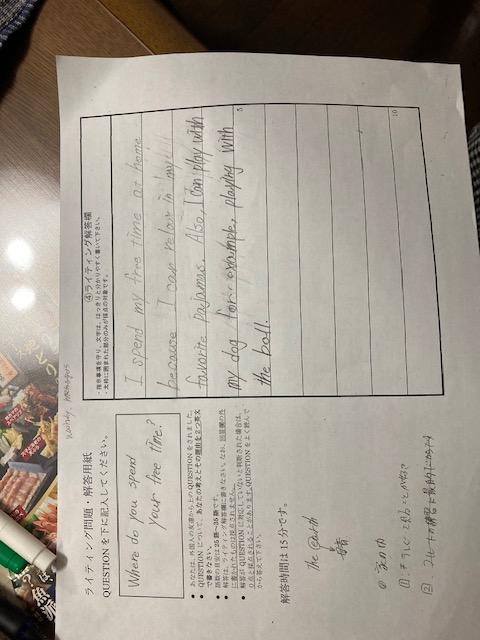 ライティング問題 解答用紙
QUESTION を下に記入してください。
Where do you spend
your free time?
● あなたは、外国人の友達から上の QUESTION をされました。
● QUESTION について、あなたの考えとその理由を2つ英文で書きなさい。
● 語数の目安は25語~35語です。
● 解答は、ライティング解答欄に書きなさい。なお、解答欄の外に書かれたものは採点されません。
● 解答が QUESTION に対応していないと判断された場合は、0点と採点されることがあります。QUESTION をよく読んでから答えて下さい。
解答時間は15分です。
the earth
④ライティング解答欄
・指示事項を守り、文字は、はっきりと分かりやすく書いて下さい。
・太枠に囲まれた部分のみが採点の対象です。
I spend my free time at home
because I can relax in my
favorite pajamas. Also, I can play with
my dog for example, playing with
the ball.
5
10